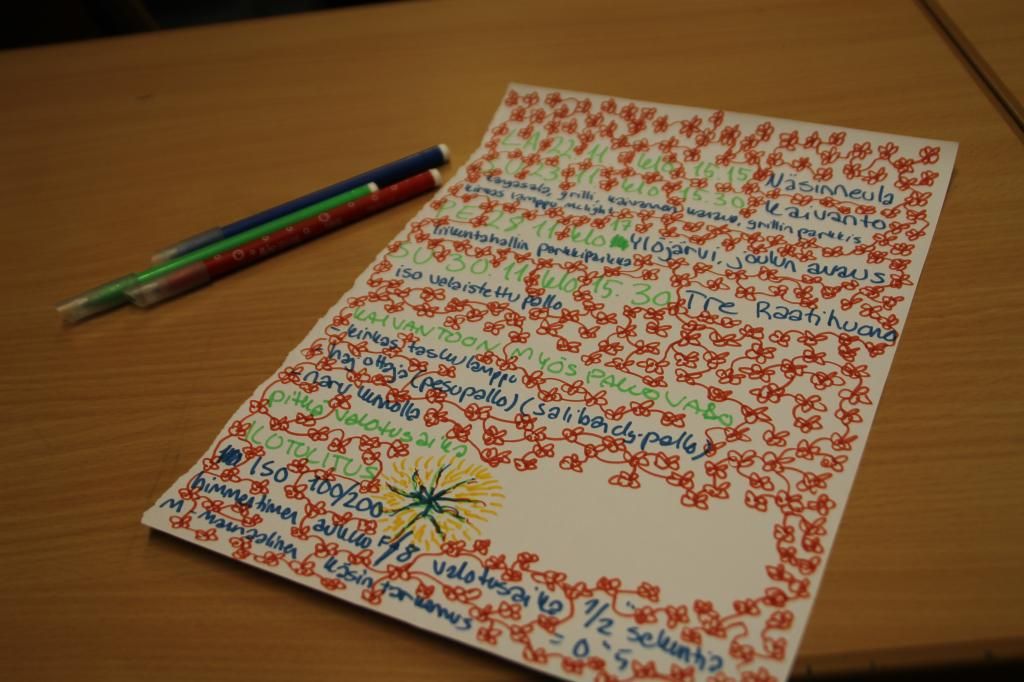 LA 22.11 klo 15.15 Näsinneula
SU 23.11 klo 15.30 Kaivanto
Kangasala, grilli, kaivannon kanava, grillin parkkis
kirkas lamppu
PE 28.11 klo 17 Ylöjärvi, joulun avaus
Trikuntahallin parkkipaikka
SU 30.11 klo 15.30 TTe Raatihuone
iso valaistettu pallo
KAIVANTOON MYÖS PALLOVALO
- kirkas taskulamppu
hajottaja (pesupallo) (salibandy-pallo)
- naru
pitkä valotusaika
ILOTULITUS
ISO 100/200
himmentimen aukko F/8 valotusaika 1/2 sekuntia
= 0.5
M manuaalinen käsin tarkennus